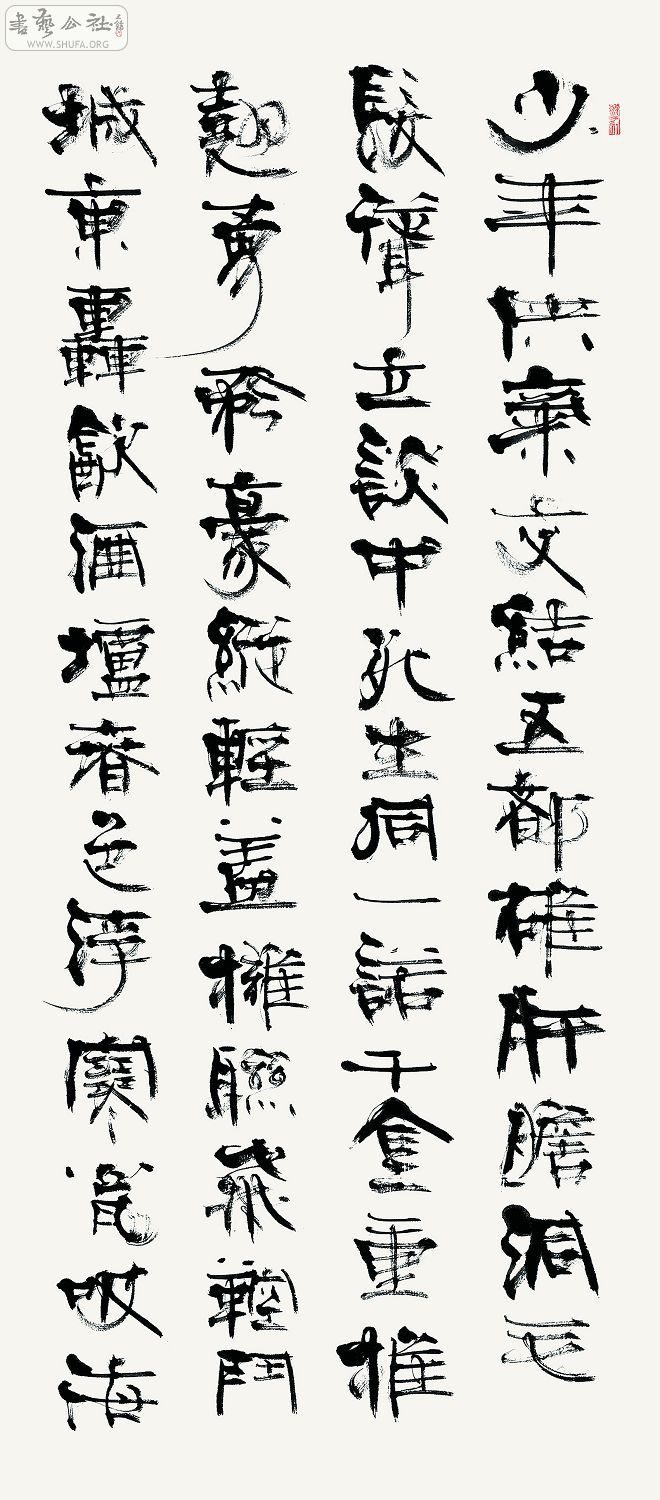 書藝公社
WWW.SHUFA.ORG
少年俠氣交結五都雄肝膽洞毛
髮聳立談中死生同一諾千金重推
翹勇矜豪縱輕蓋擁聯飛鞚鬥
城東轟飲酒壚春色浮寒甕吸海